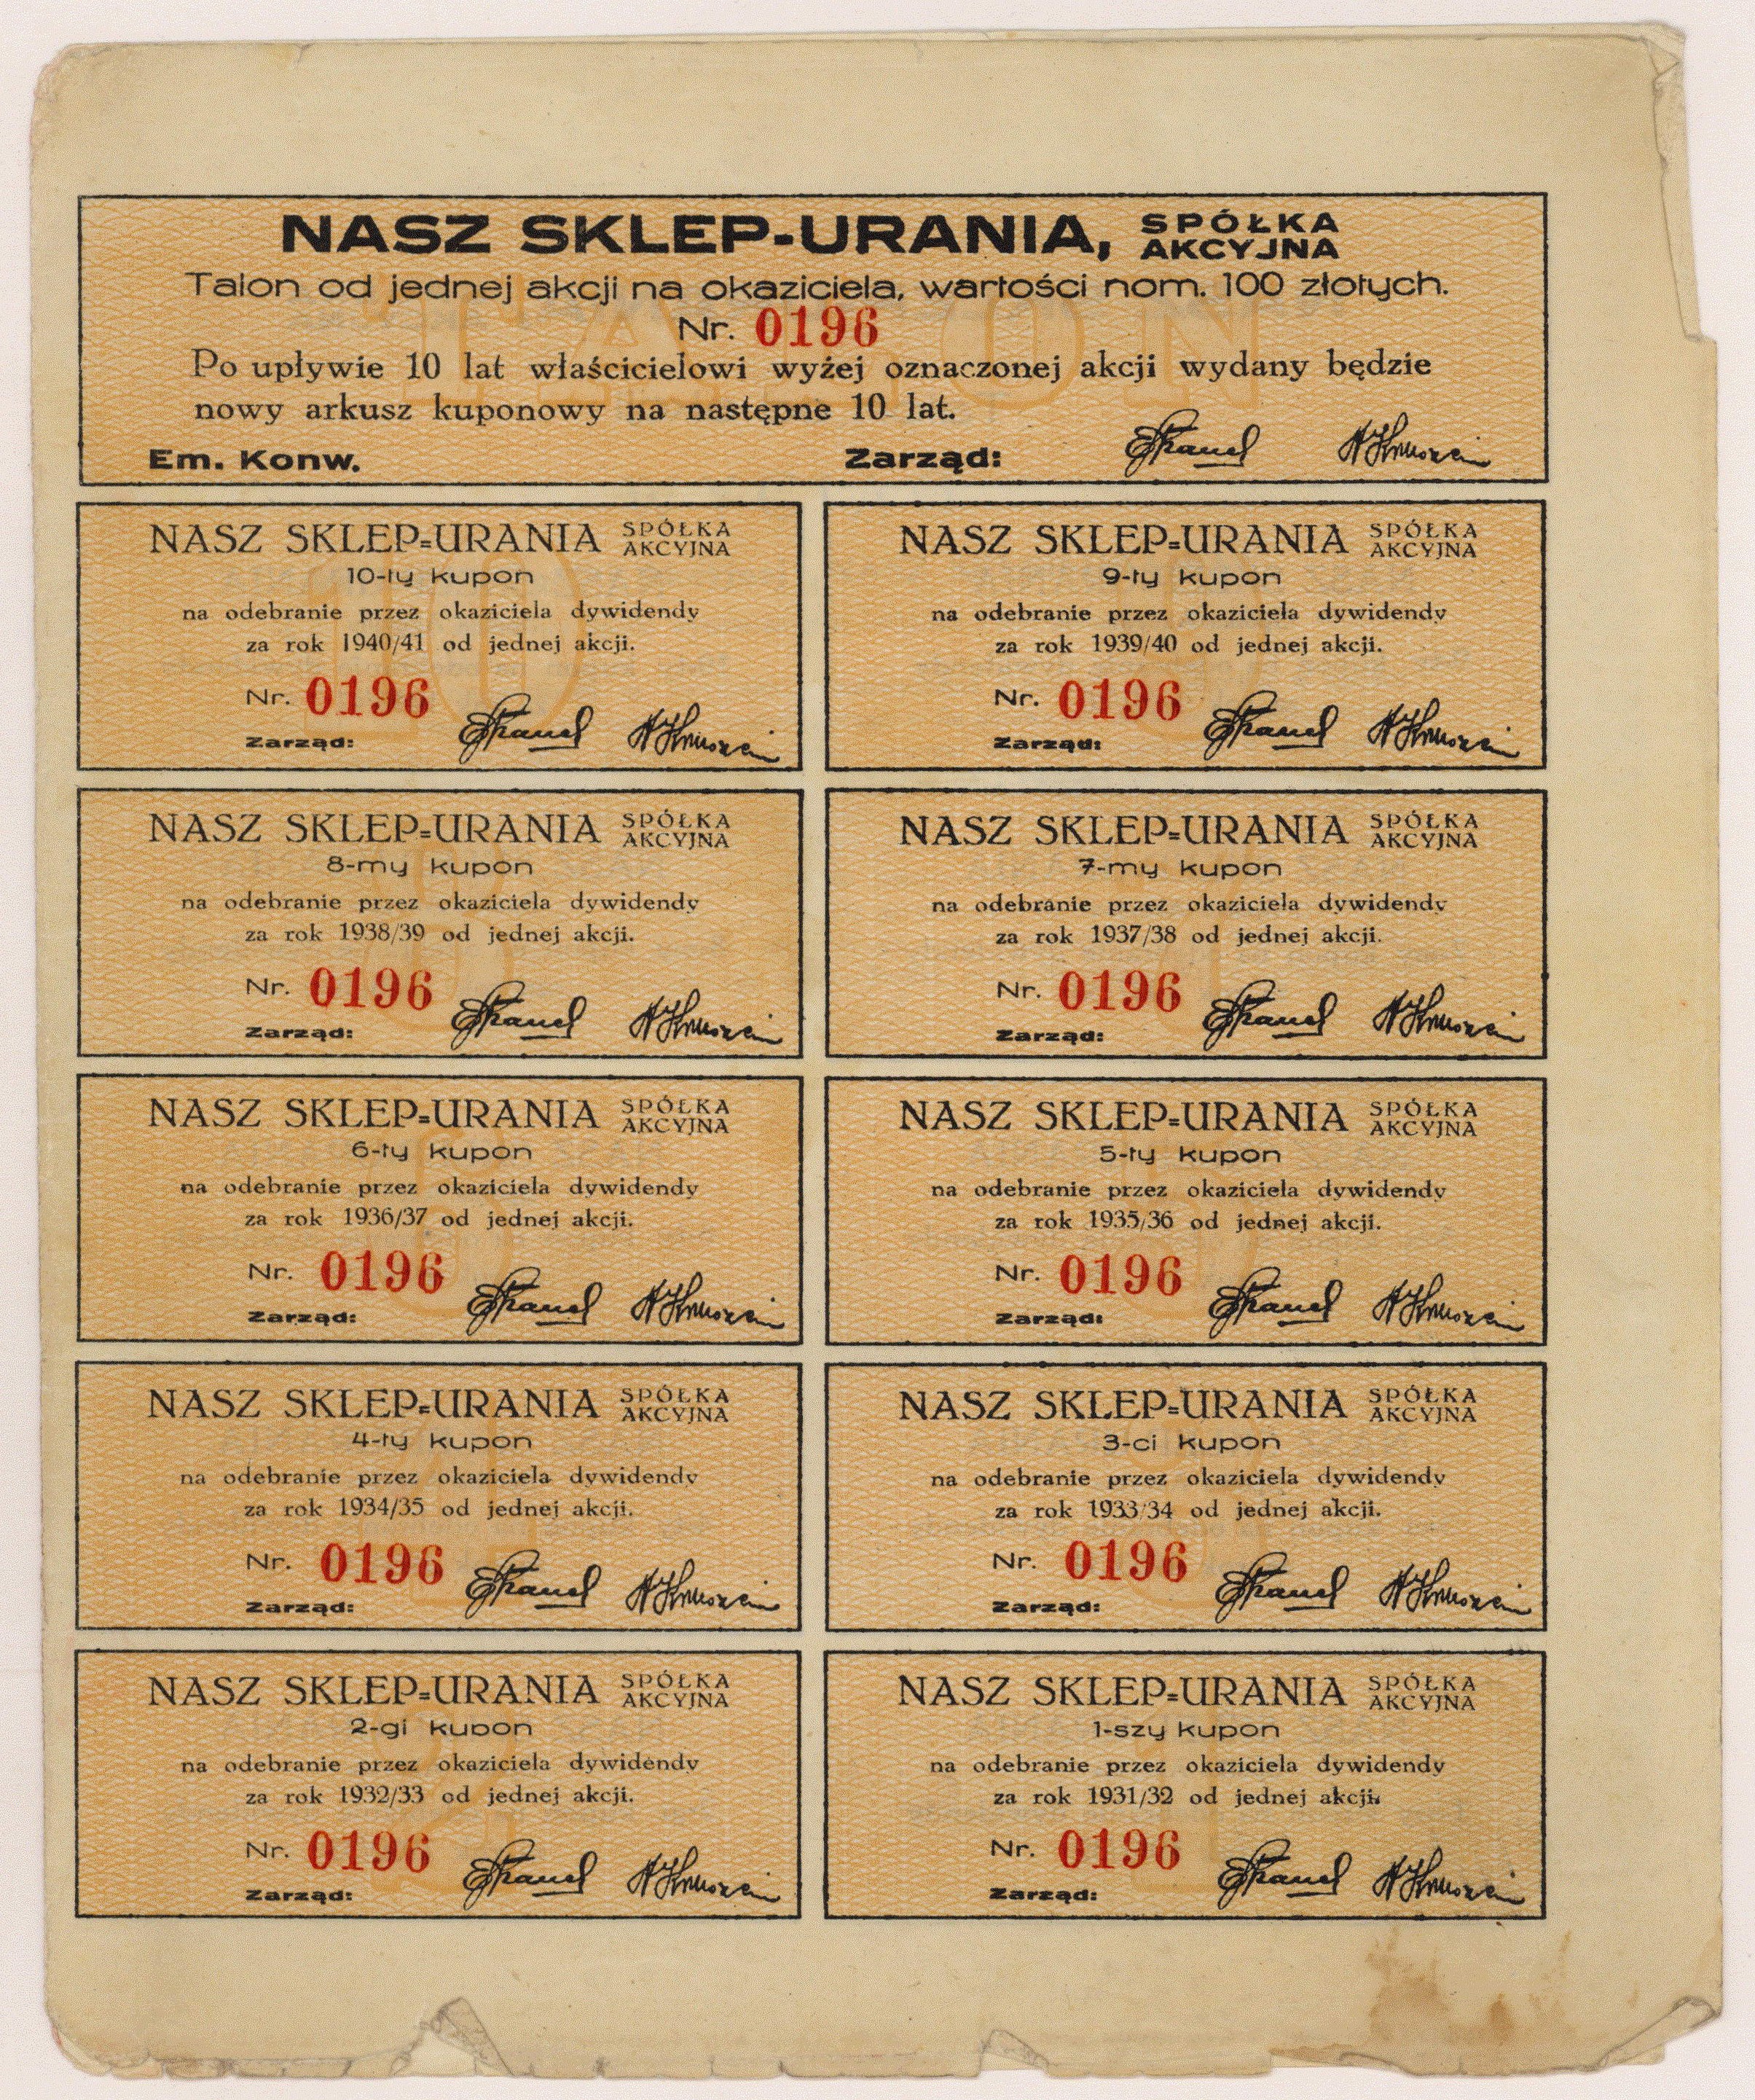 NASZ SKLEP-URANIA, SPÓŁKA AKCYJNA
Talon od jednej akcji na okaziciela, wartości nom. 100 złotych.
Nr. 0196
Po upływie 10 lat właścicielowi wyżej oznaczonej akcji wydany będzie
nowy arkusz kuponowy na następne 10 lat.
Em. Konw. Zarząd:
TALON
NASZ SKLEP=URANIA SPÓŁKA AKCYJNA
10-ty kupon
na odebranie przez okaziciela dywidendy
za rok 1940/41 od jednej akcji.
Nr. 0196
Zarząd:
NASZ SKLEP=URANIA SPÓŁKA AKCYJNA
9-ty kupon
na odebranie przez okaziciela dywidendy
za rok 1939/40 od jednej akcji.
Nr. 0196
Zarząd:
NASZ SKLEP=URANIA SPÓŁKA AKCYJNA
8-my kupon
na odebranie przez okaziciela dywidendy
za rok 1938/39 od jednej akcji.
Nr. 0196
Zarząd:
NASZ SKLEP=URANIA SPÓŁKA AKCYJNA
7-my kupon
na odebranie przez okaziciela dywidendy
za rok 1937/38 od jednej akcji.
Nr. 0196
Zarząd:
NASZ SKLEP=URANIA SPÓŁKA AKCYJNA
6-ty kupon
na odebranie przez okaziciela dywidendy
za rok 1936/37 od jednej akcji.
Nr. 0196
Zarząd:
NASZ SKLEP=URANIA SPÓŁKA AKCYJNA
5-ty kupon
na odebranie przez okaziciela dywidendy
za rok 1935/36 od jednej akcji.
Nr. 0196
Zarząd:
NASZ SKLEP=URANIA SPÓŁKA AKCYJNA
4-ty kupon
na odebranie przez okaziciela dywidendy
za rok 1934/35 od jednej akcji.
Nr. 0196
Zarząd:
NASZ SKLEP=URANIA SPÓŁKA AKCYJNA
3-ci kupon
na odebranie przez okaziciela dywidendy
za rok 1933/34 od jednej akcji.
Nr. 0196
Zarząd:
NASZ SKLEP=URANIA SPÓŁKA AKCYJNA
2-gi kupon
na odebranie przez okaziciela dywidendy
za rok 1932/33 od jednej akcji.
Nr. 0196
Zarząd:
NASZ SKLEP=URANIA SPÓŁKA AKCYJNA
1-szy kupon
na odebranie przez okaziciela dywidendy
za rok 1931/32 od jednej akcji.
Nr. 0196
Zarząd: